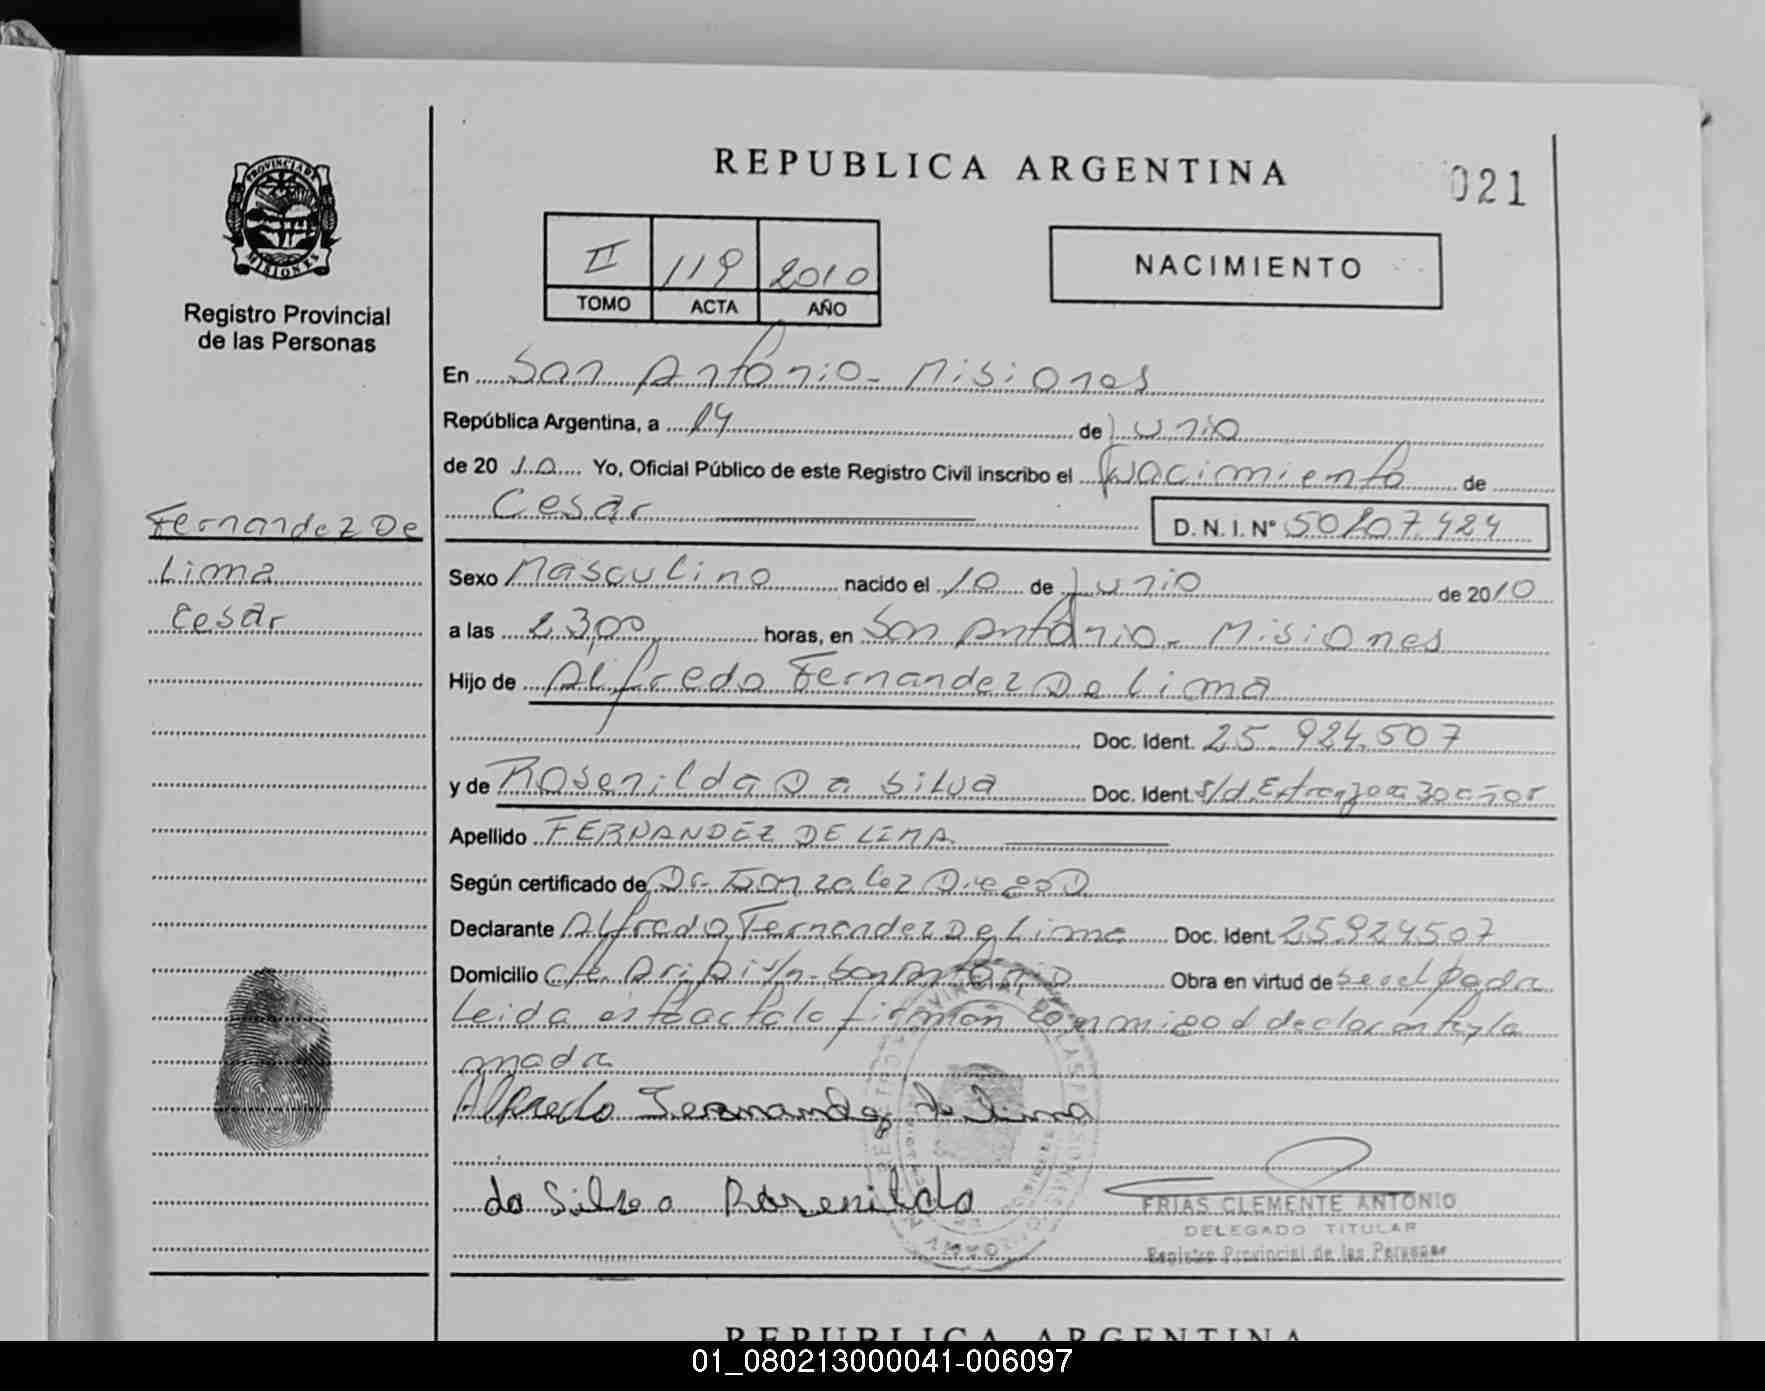 REPUBLICA ARGENTINA
021
PROVINCIA DE
MISIONES
Registro Provincial
de las Personas
II 119 2010
TOMO ACTA AÑO
NACIMIENTO
En San Antonio - Misiones
República Argentina, a 14 de Junio
de 20 10 Yo, Oficial Público de este Registro Civil inscribo el Nacimiento de
Cesar D. N. I. Nº 50207424
Fernandez De
Lima
Cesar
Sexo Masculino nacido el 10 de Junio de 2010
a las 23,00 horas, en San Antonio - Misiones
Hijo de Alfredo Fernandez De Lima
Doc. Ident. 25.924.507
y de Rosenilda Da Silva Doc. Ident. s/d. Extranjera 30 años
Apellido FERNANDEZ DE LIMA
Según certificado de Dr. Gonzalez Diego D
Declarante Alfredo Fernandez De Lima Doc. Ident. 25.924507
Domicilio s/n - San Antonio Obra en virtud de
Leida esta acta la firman conmigo el declarante y la
madre
Alfredo Fernandez de lima
da Silva Rosenilda
FRIAS CLEMENTE ANTONIO
DELEGADO TITULAR
Registro Provincial de las Personas
REPUBLICA ARGENTINA
01_080213000041-006097